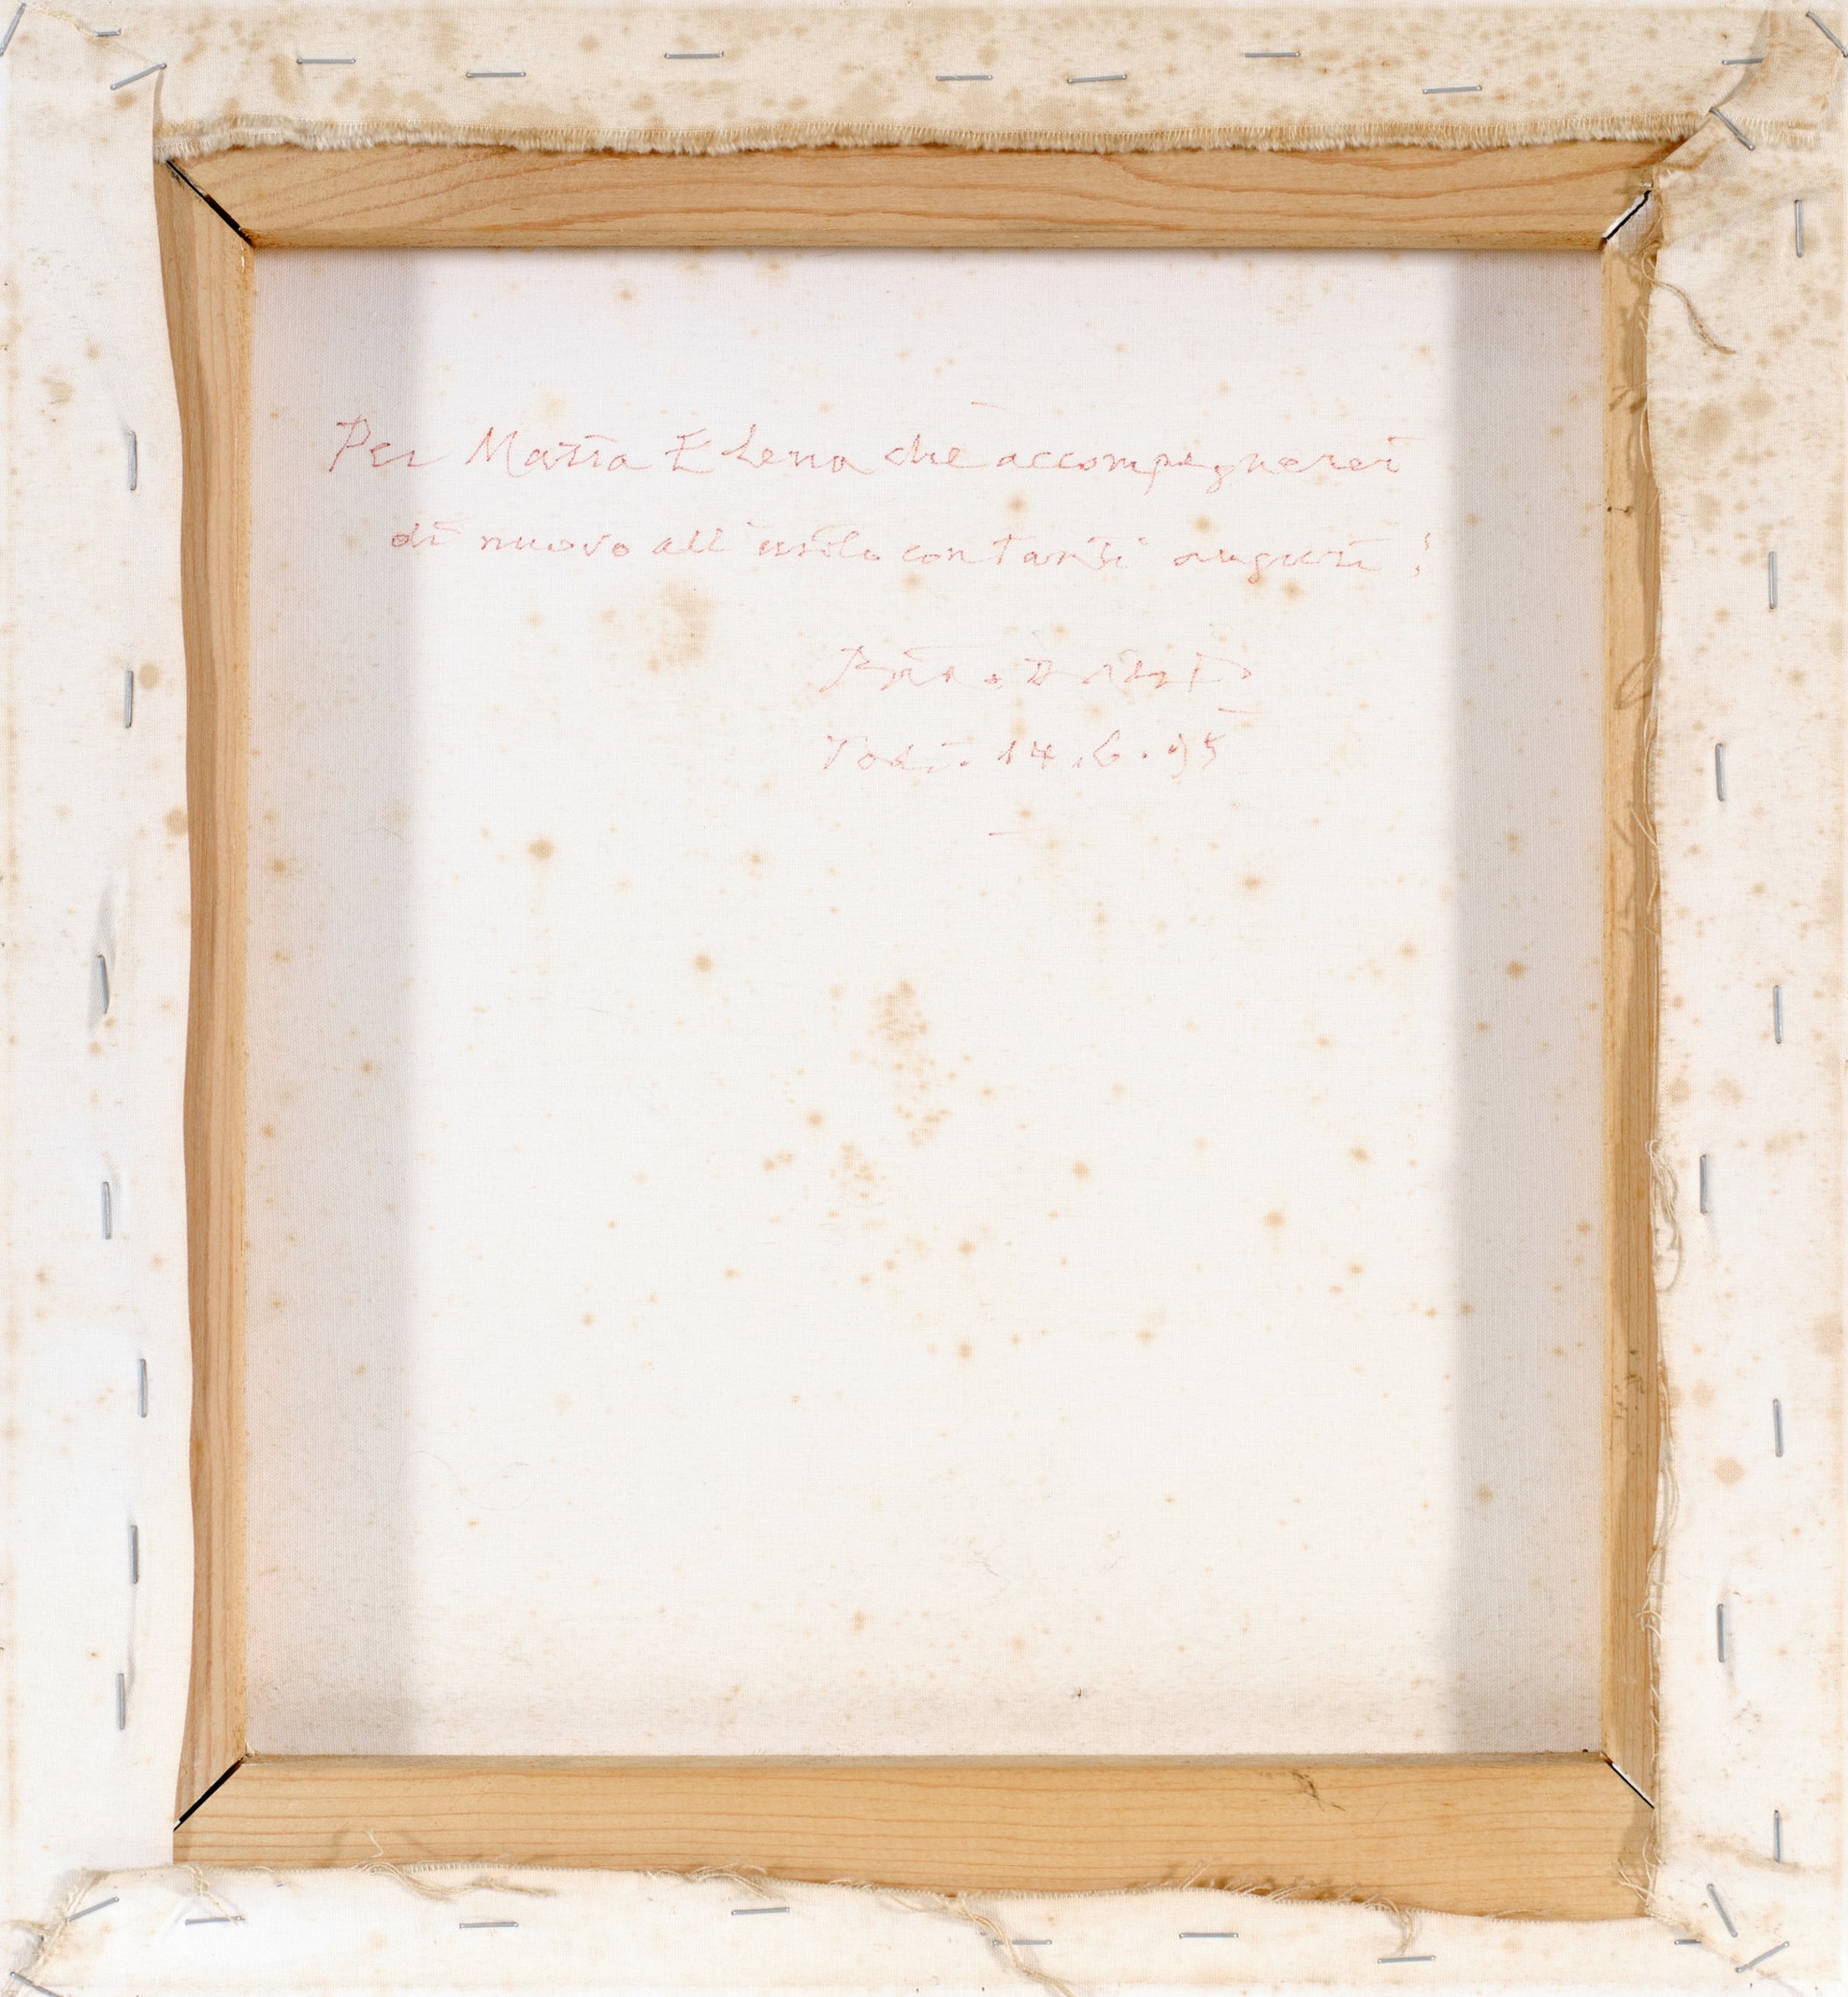 Per Maria Elena che accompagnerei
di nuovo all'asilo con tanti auguri!
Piero Dorazio
Todi. 14.6.95